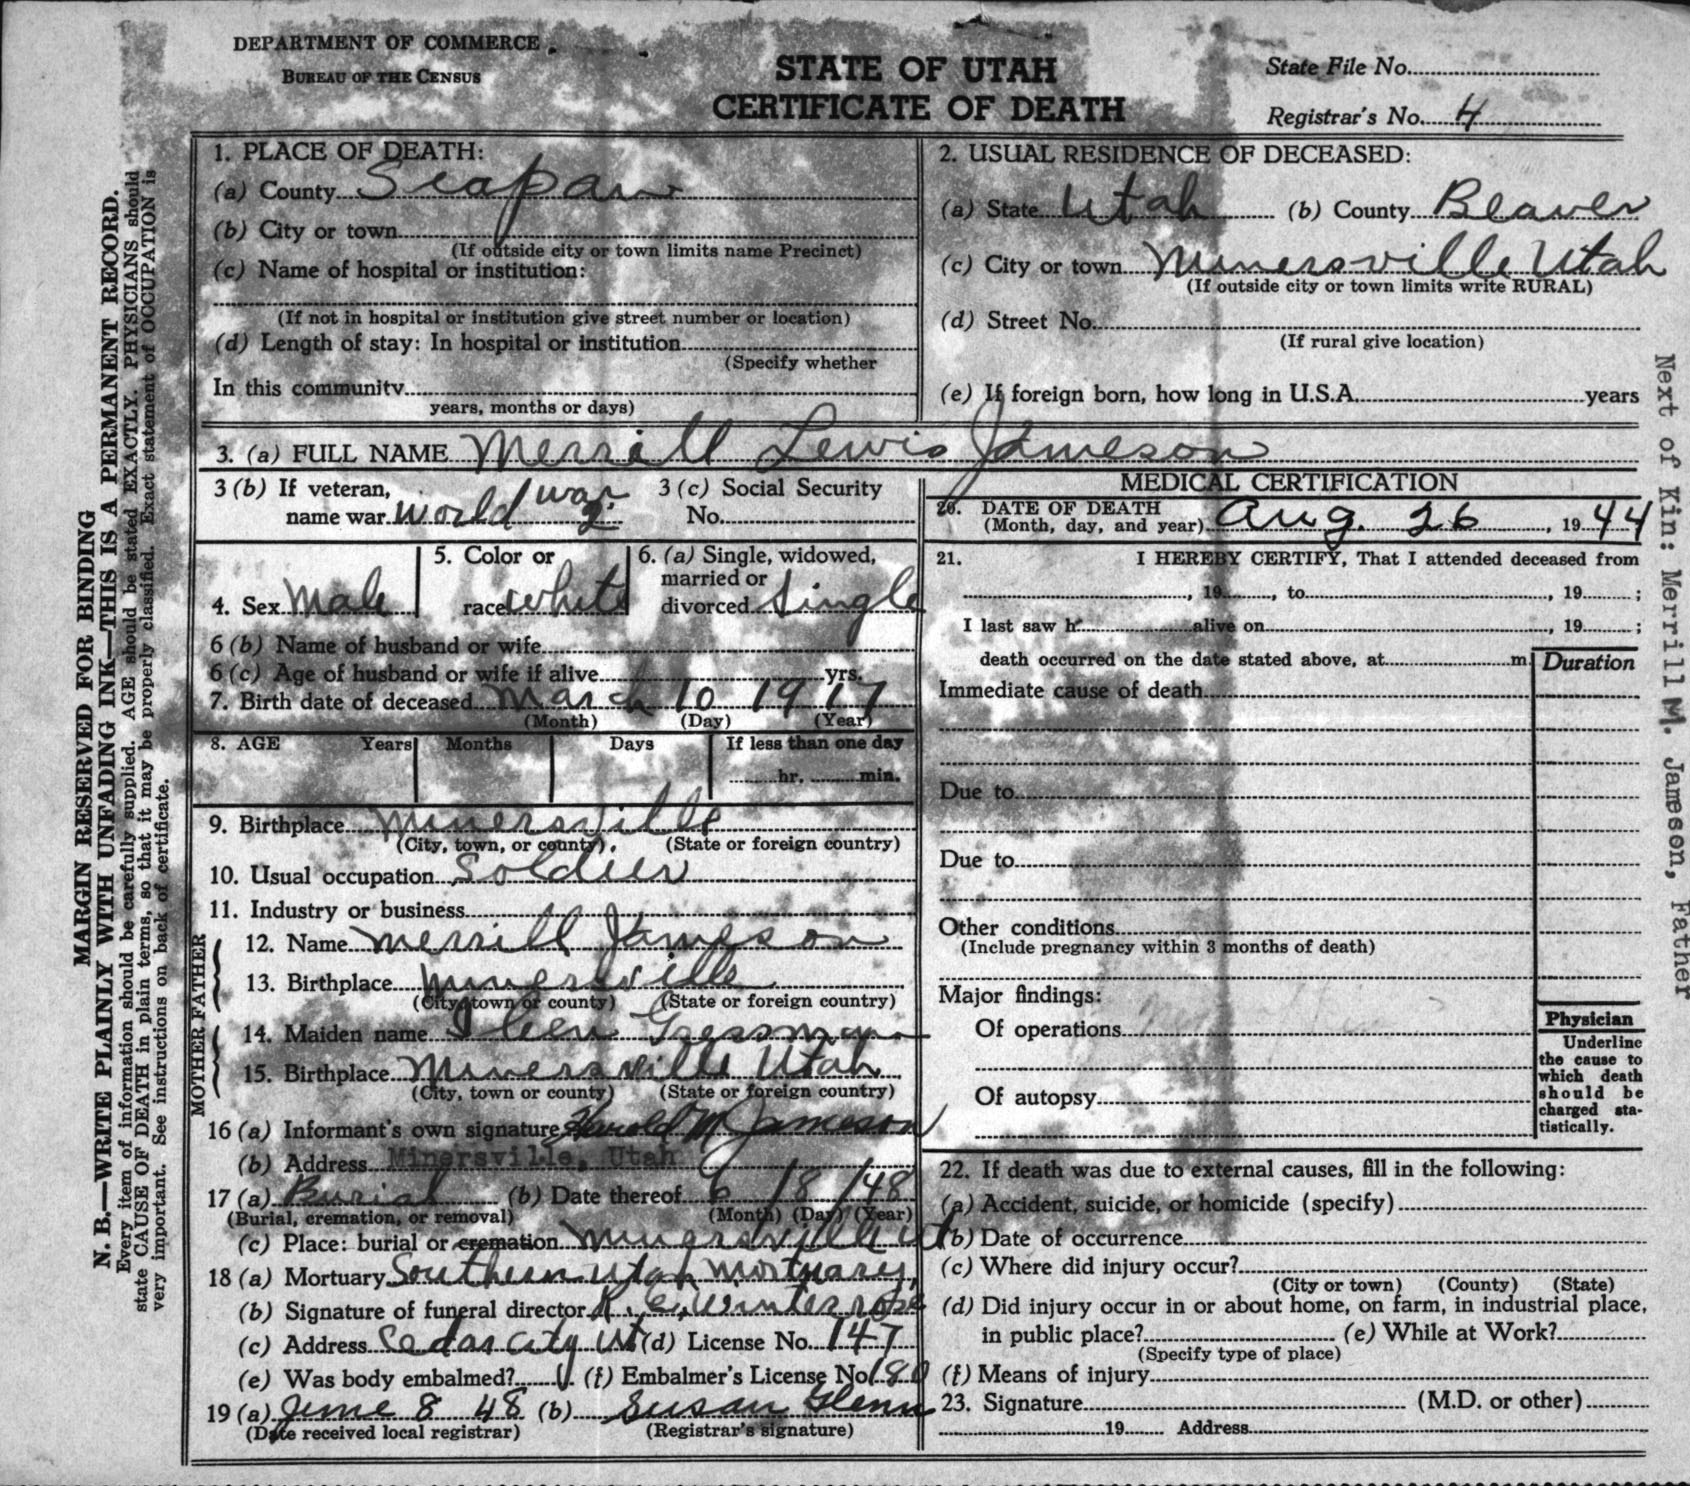 DEPARTMENT OF COMMERCE
BUREAU OF THE CENSUS
STATE OF UTAH
CERTIFICATE OF DEATH
State File No.
Registrar's No. 4
MARGIN RESERVED FOR BINDING
N. B.—WRITE PLAINLY WITH UNFADING INK—THIS IS A PERMANENT RECORD.
Every item of information should be carefully supplied. AGE should be stated EXACTLY. PHYSICIANS should
state CAUSE OF DEATH in plain terms, so that it may be properly classified. Exact statement of OCCUPATION is
very important. See instructions on back of certificate.
1. PLACE OF DEATH:
(a) County Seapaw
(b) City or town
(If outside city or town limits name Precinct)
(c) Name of hospital or institution:
(If not in hospital or institution give street number or location)
(d) Length of stay: In hospital or institution
(Specify whether
In this community
years, months or days)
2. USUAL RESIDENCE OF DECEASED:
(a) State Utah (b) County Beaver
(c) City or town Minersville Utah
(If outside city or town limits write RURAL)
(d) Street No.
(If rural give location)
(e) If foreign born, how long in U.S.A. years
3. (a) FULL NAME Merrill Lewis Jameson
3 (b) If veteran, name war World War 2
3 (c) Social Security No.
4. Sex Male
5. Color or race White
6. (a) Single, widowed, married or divorced Single
6 (b) Name of husband or wife
6 (c) Age of husband or wife if alive yrs.
7. Birth date of deceased March 10 1917
(Month) (Day) (Year)
8. AGE Years Months Days If less than one day
hr. min.
9. Birthplace Minersville
(City, town, or county) (State or foreign country)
10. Usual occupation Soldier
11. Industry or business
FATHER
12. Name Merrill Jameson
13. Birthplace Minersville
(City, town or county) (State or foreign country)
MOTHER
14. Maiden name
15. Birthplace Minersville Utah
(City, town or county) (State or foreign country)
16 (a) Informant's own signature Harold M Jameson
(b) Address Minersville, Utah
17 (a) Burial (b) Date thereof 6/8/48
(Burial, cremation, or removal) (Month) (Day) (Year)
(c) Place: burial or cremation Minersville Ut
18 (a) Mortuary Southern Utah Mortuary,
(b) Signature of funeral director R. E. Winterrose
(c) Address Cedar City Ut (d) License No. 147
(e) Was body embalmed? (f) Embalmer's License No. 180
19 (a) June 8 48 (b) Susan Glenn
(Date received local registrar) (Registrar's signature)
MEDICAL CERTIFICATION
20. DATE OF DEATH
(Month, day, and year) Aug. 26, 1944
21. I HEREBY CERTIFY, That I attended deceased from
, 19 , to , 19 ;
I last saw h alive on , 19 ;
death occurred on the date stated above, at m.
Duration
Immediate cause of death
Due to
Due to
Other conditions
(Include pregnancy within 3 months of death)
Major findings:
Of operations
Of autopsy
Physician
Underline
the cause to
which death
should be
charged sta-
tistically.
22. If death was due to external causes, fill in the following:
(a) Accident, suicide, or homicide (specify)
(b) Date of occurrence
(c) Where did injury occur?
(City or town) (County) (State)
(d) Did injury occur in or about home, on farm, in industrial place,
in public place? (e) While at Work?
(Specify type of place)
(f) Means of injury
23. Signature (M.D. or other)
19 Address
Next of Kin: Merrill M. Jameson, Father